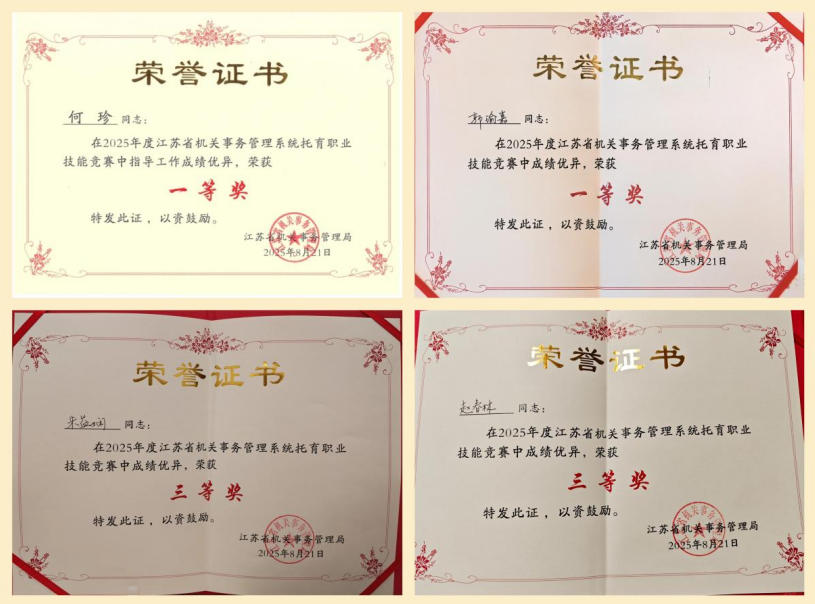 荣誉证书
何珍 同志：
在2025年度江苏省机关事务管理系统托育职业
技能竞赛中指导工作成绩优异，荣获
一等奖
特发此证，以资鼓励。
江苏省机关事务管理局
2025年8月21日
荣誉证书
郭渝嘉 同志：
在2025年度江苏省机关事务管理系统托育职业
技能竞赛中成绩优异，荣获
一等奖
特发此证，以资鼓励。
江苏省机关事务管理局
2025年8月21日
荣誉证书
同志：
在2025年度江苏省机关事务管理系统托育职业
技能竞赛中成绩优异，荣获
三等奖
特发此证，以资鼓励。
江苏省机关事务管理局
2025年8月21日
荣誉证书
赵春林 同志：
在2025年度江苏省机关事务管理系统托育职业
技能竞赛中成绩优异，荣获
三等奖
特发此证，以资鼓励。
江苏省机关事务管理局
2025年8月21日